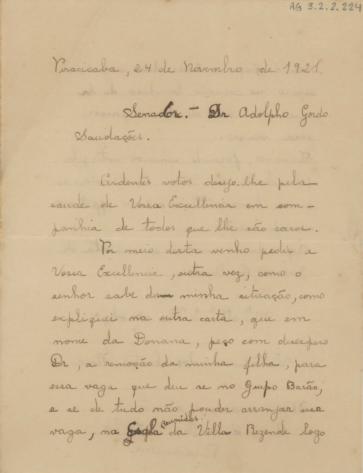 AG 3.2.2.224
Piracicaba, 24 de Novembro de 1921.
Senador.- Dr Adolpho Gordo
Saudações.
Ardentes votos desejo-lhe pela
saude de Vossa Excellencia em com-
panhia de todos que lhe são caros.
Por meio desta venho pedir a
Vossa Excellencia, outra vez, como o
senhor sabe da minha situação, como
expliquei na outra carta, que em
nome da Donana, peço com desespero
Dr, a remoção da minha filha, para
essa vaga que deu se no Grupo Barão,
e se de tudo não pouder arranjar essa
vaga, na Escola reunidas da Villa Rezende logo